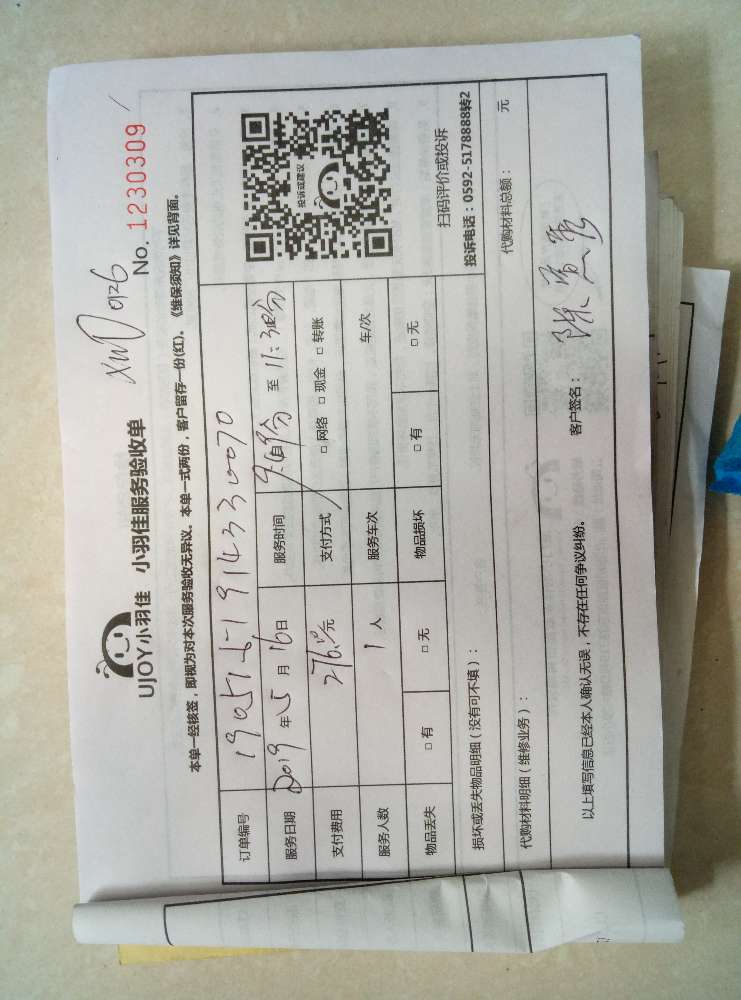 UJOY小羽佳 小羽佳服务验收单
No. 1230309
本单一经核签,即视为对本次服务验收无异议。本单一式两份,客户留存一份(红)。《维保须知》详见背面。
订单编号
服务日期 2019 年 5 月 16 日 服务时间 至 11:30分
支付费用 元 支付方式 □ 网络 □ 现金 □ 转账
服务人数 1 人 服务车次 车/次
物品丢失 □ 有 □ 无 物品损坏 □ 有 □ 无
投诉或建议
扫码评价或投诉
投诉电话:0592-5178888转2
损坏或丢失物品明细(没有可不填):
代购材料明细(维修业务): 代购材料总额: 元
以上填写信息已经本人确认无误,不存在任何争议纠纷。 客户签名: